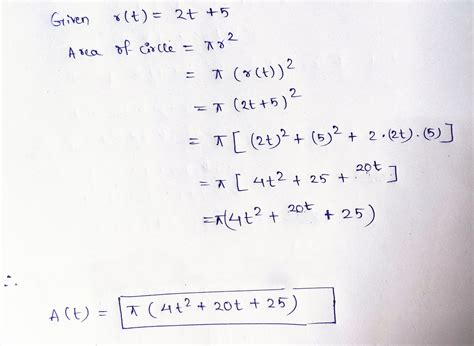 Given r(t) = 2t + 5
Area of circle = πr²
= π (r(t))²
= π (2t+5)²
= π [ (2t)² + (5)² + 2·(2t)·(5)]
= π [ 4t² + 25 + 20t ]
= π(4t² + 20t + 25)
∴
A(t) = π (4t² + 20t + 25)